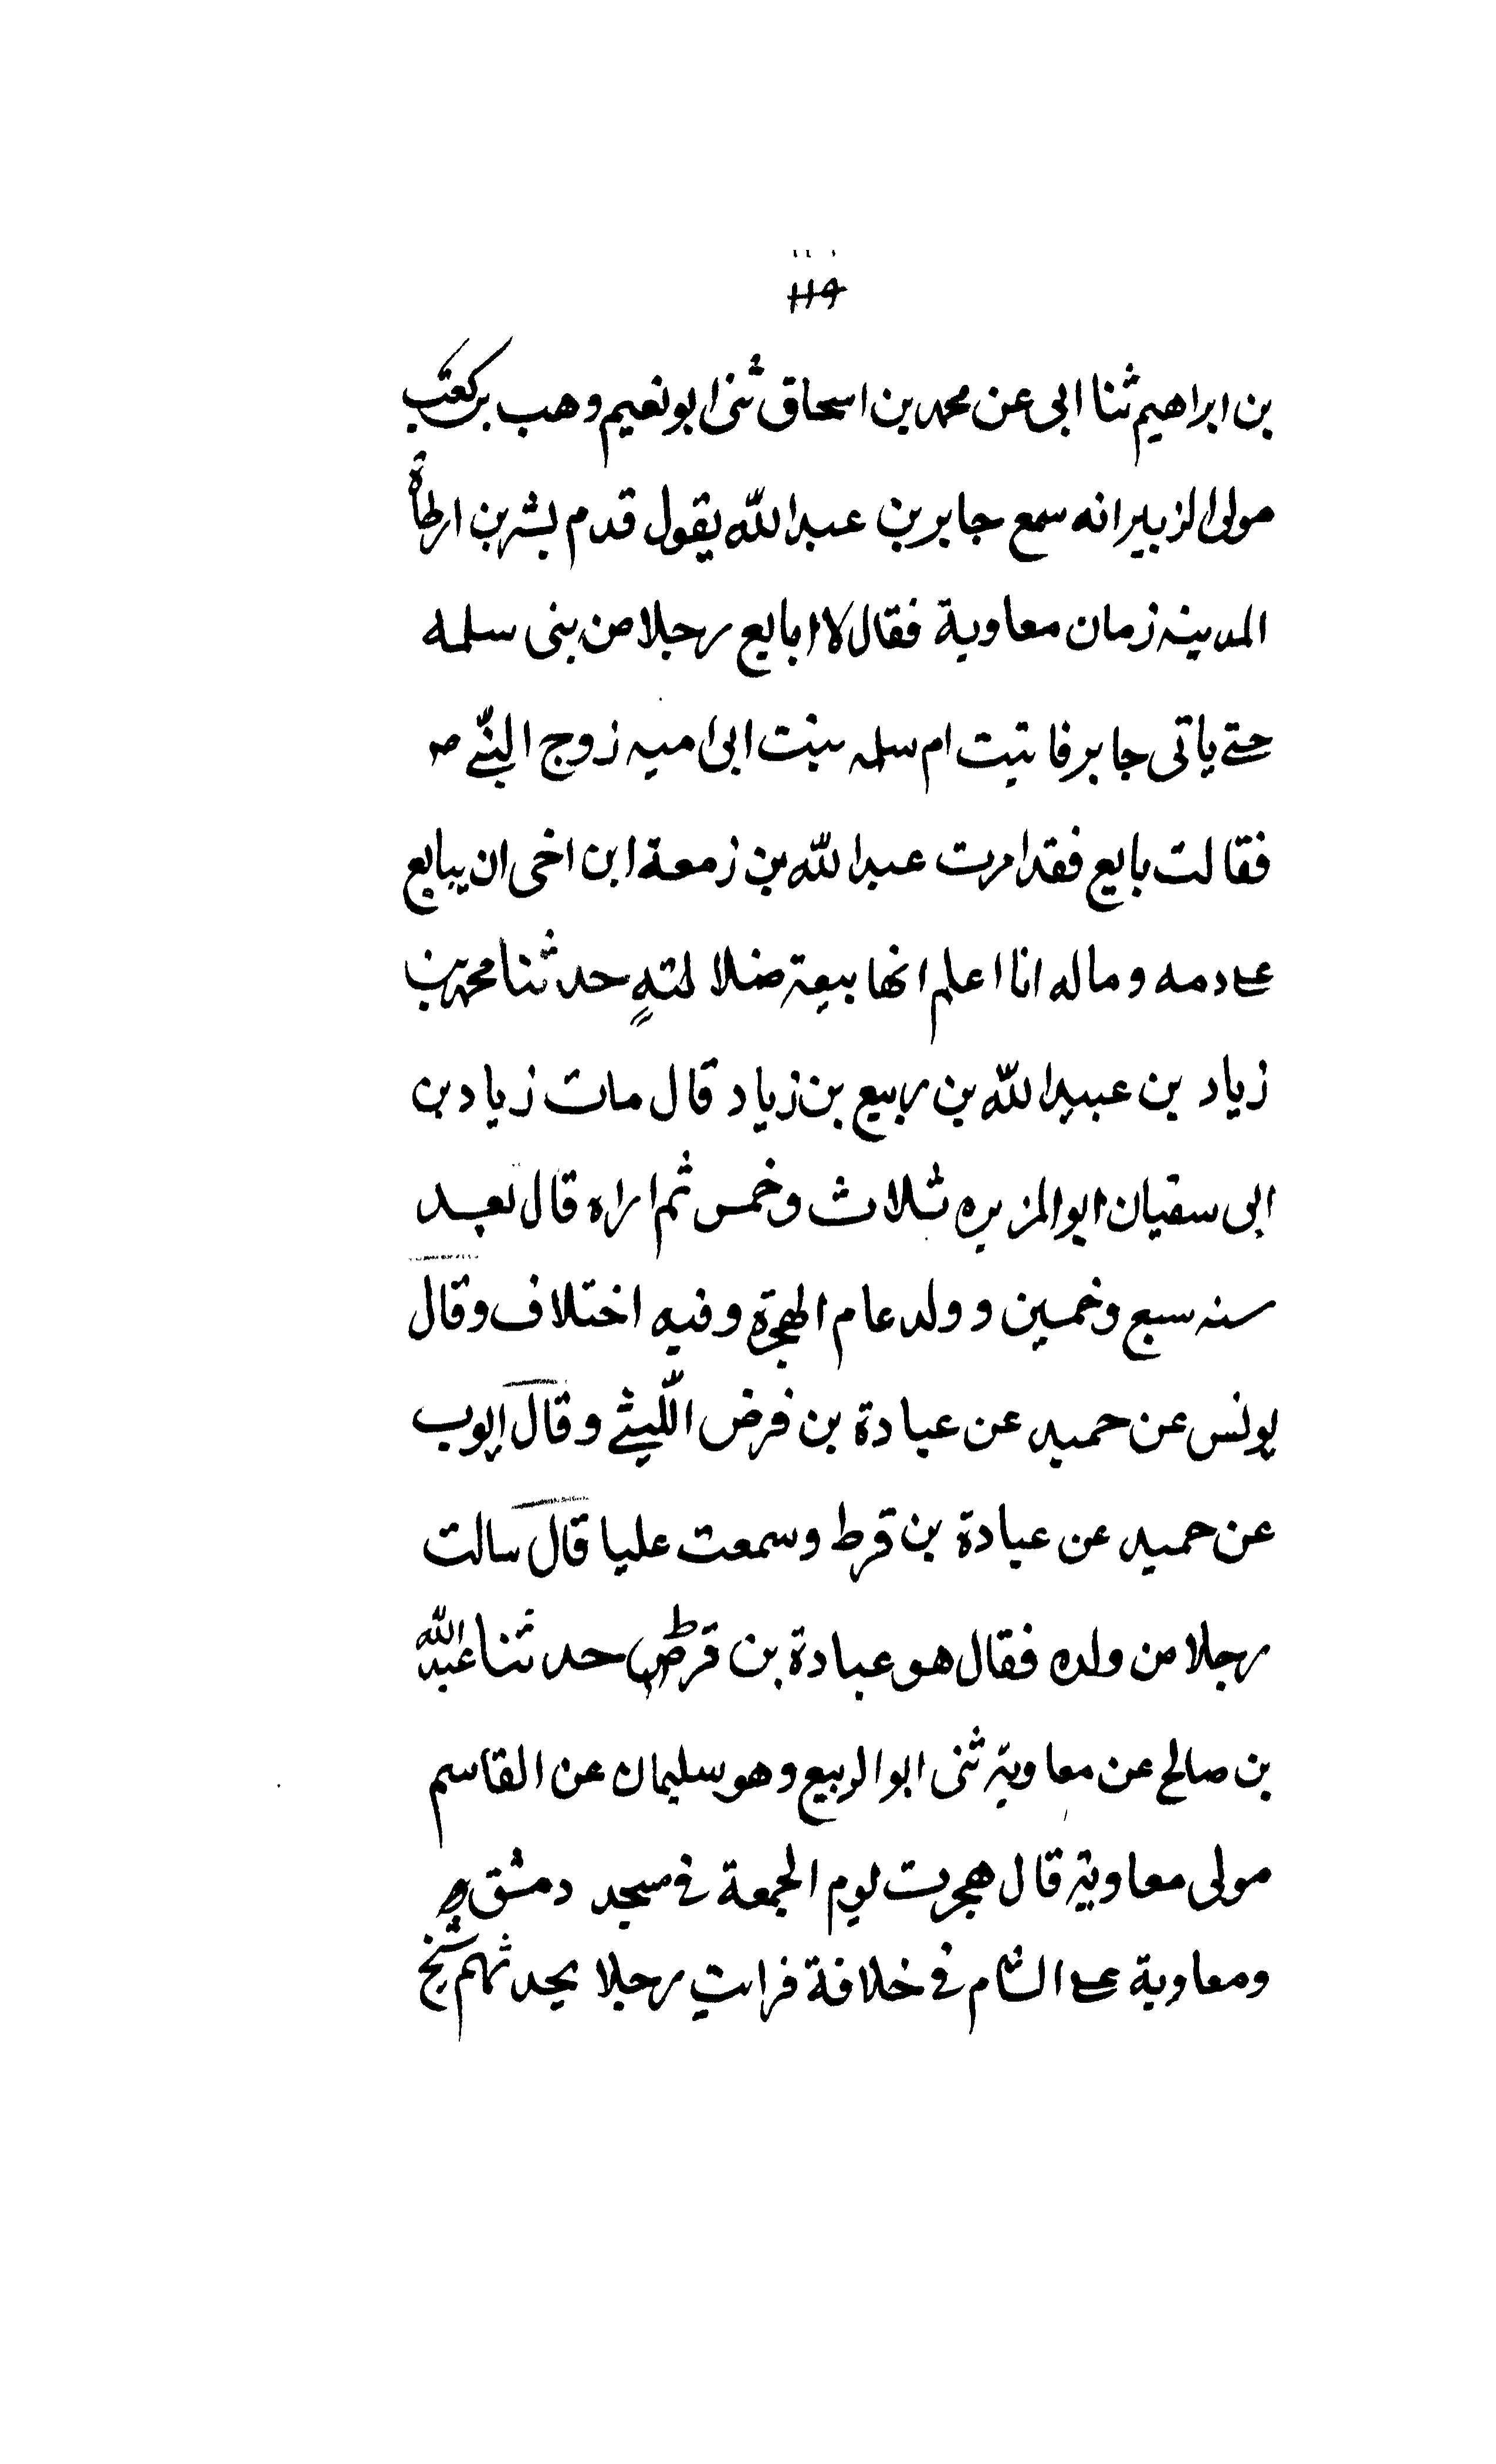 ١١٩
بن ابراهيم ثنا ابى عن محمد بن اسحاق ثنى ابو نعيم وهب بن كعب
مولى الزبير انه سمع جابر بن عبد الله يقول قدم بشر بن ارطاة
المدينه زمان معاوية فقال لا ابايع رجلا من بنى سلمه
حتے ياتى جابر فاتيت ام سلمه بنت ابى اميه زوج النبے ص
فقالت بايع فقد امرت عبد الله بن زمعة ابن اخى ان يبايع
عے دمه وماله انا اعلم انها بيعة ضلالته حدثنا محمد بن
زياد بن عبيد الله بن ربيع بن زياد قال مات زياد بن
ابى سفيان ابو المزيره ثلاث وخمس ثم اراه قال بعد
سنه سبع وخمسين و ولد عام الهجرة وفيه اختلاف وقال
يونس عن حميد عن عبادة بن فرض الليثے وقال ايوب
عن حميد عن عبادة بن قرط وسمعت عليا قال سالت
رجلا من ولده فقال هو عبادة بن قرض حدثنا عبد الله
بن صالح عن معاوية ثنى ابو الربيع وهو سليمان عن القاسم
مولى معاوية قال هجرت يوم الجمعة فى مسجد دمشق
ومعاوية عے الشام فى خلافة فرايت رجلا يحدثهم شيخ